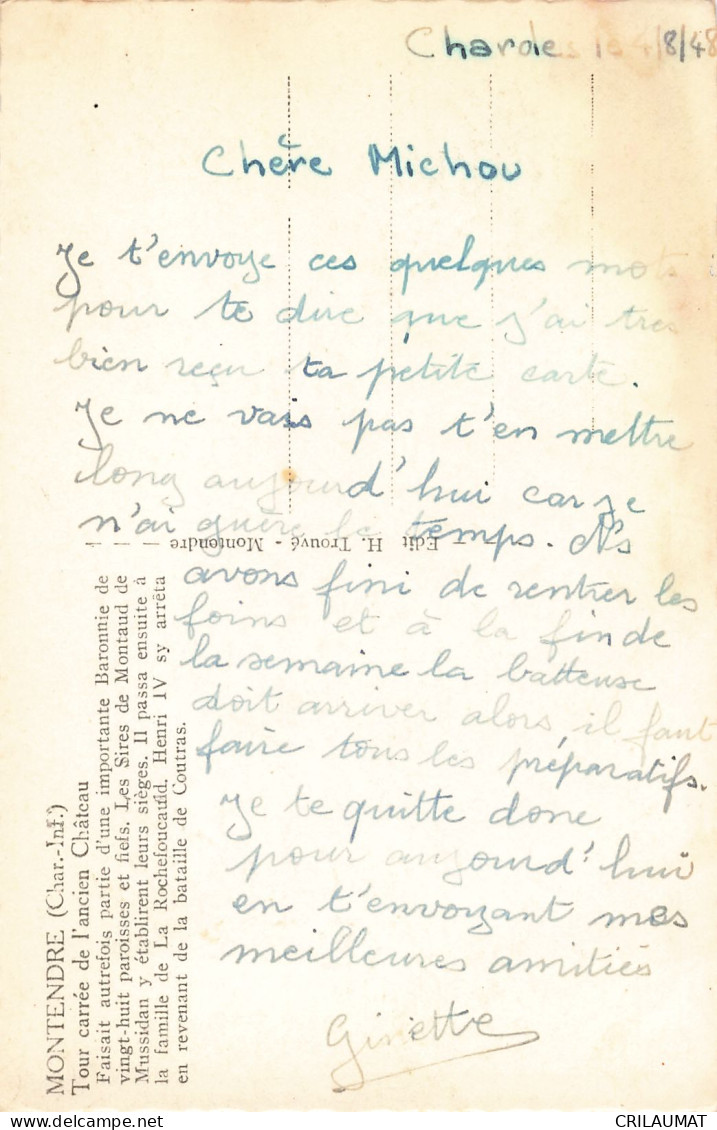 Chardes le 4/8/48
Chère Michou
Je t'envoye ces quelques mots
pour te dire que j'ai tres
bien reçu ta petite carte.
Je ne vais pas t'en mettre
long aujourd'hui car je
n'ai guère le temps. Ns
avons fini de rentrer les
foins et à la fin de
la semaine la batteuse
doit arriver alors, il faut
faire tous les préparatifs.
Je te quitte donc
pour aujourd'hui
en t'envoyant mes
meilleures amitiés
Ginette
MONTENDRE (Char.-Inf.)
Tour carrée de l'ancien Château
Faisait autrefois partie d'une importante Baronnie de
vingt-huit paroisses et fiefs. Les Sires de Montaud de
Mussidan y établirent leurs sièges. Il passa ensuite à
la famille de La Rochefoucauld. Henri IV sy arrêta
en revenant de la bataille de Coutras.
Edit H. Trouvé - Montendre
CRILAUMAT